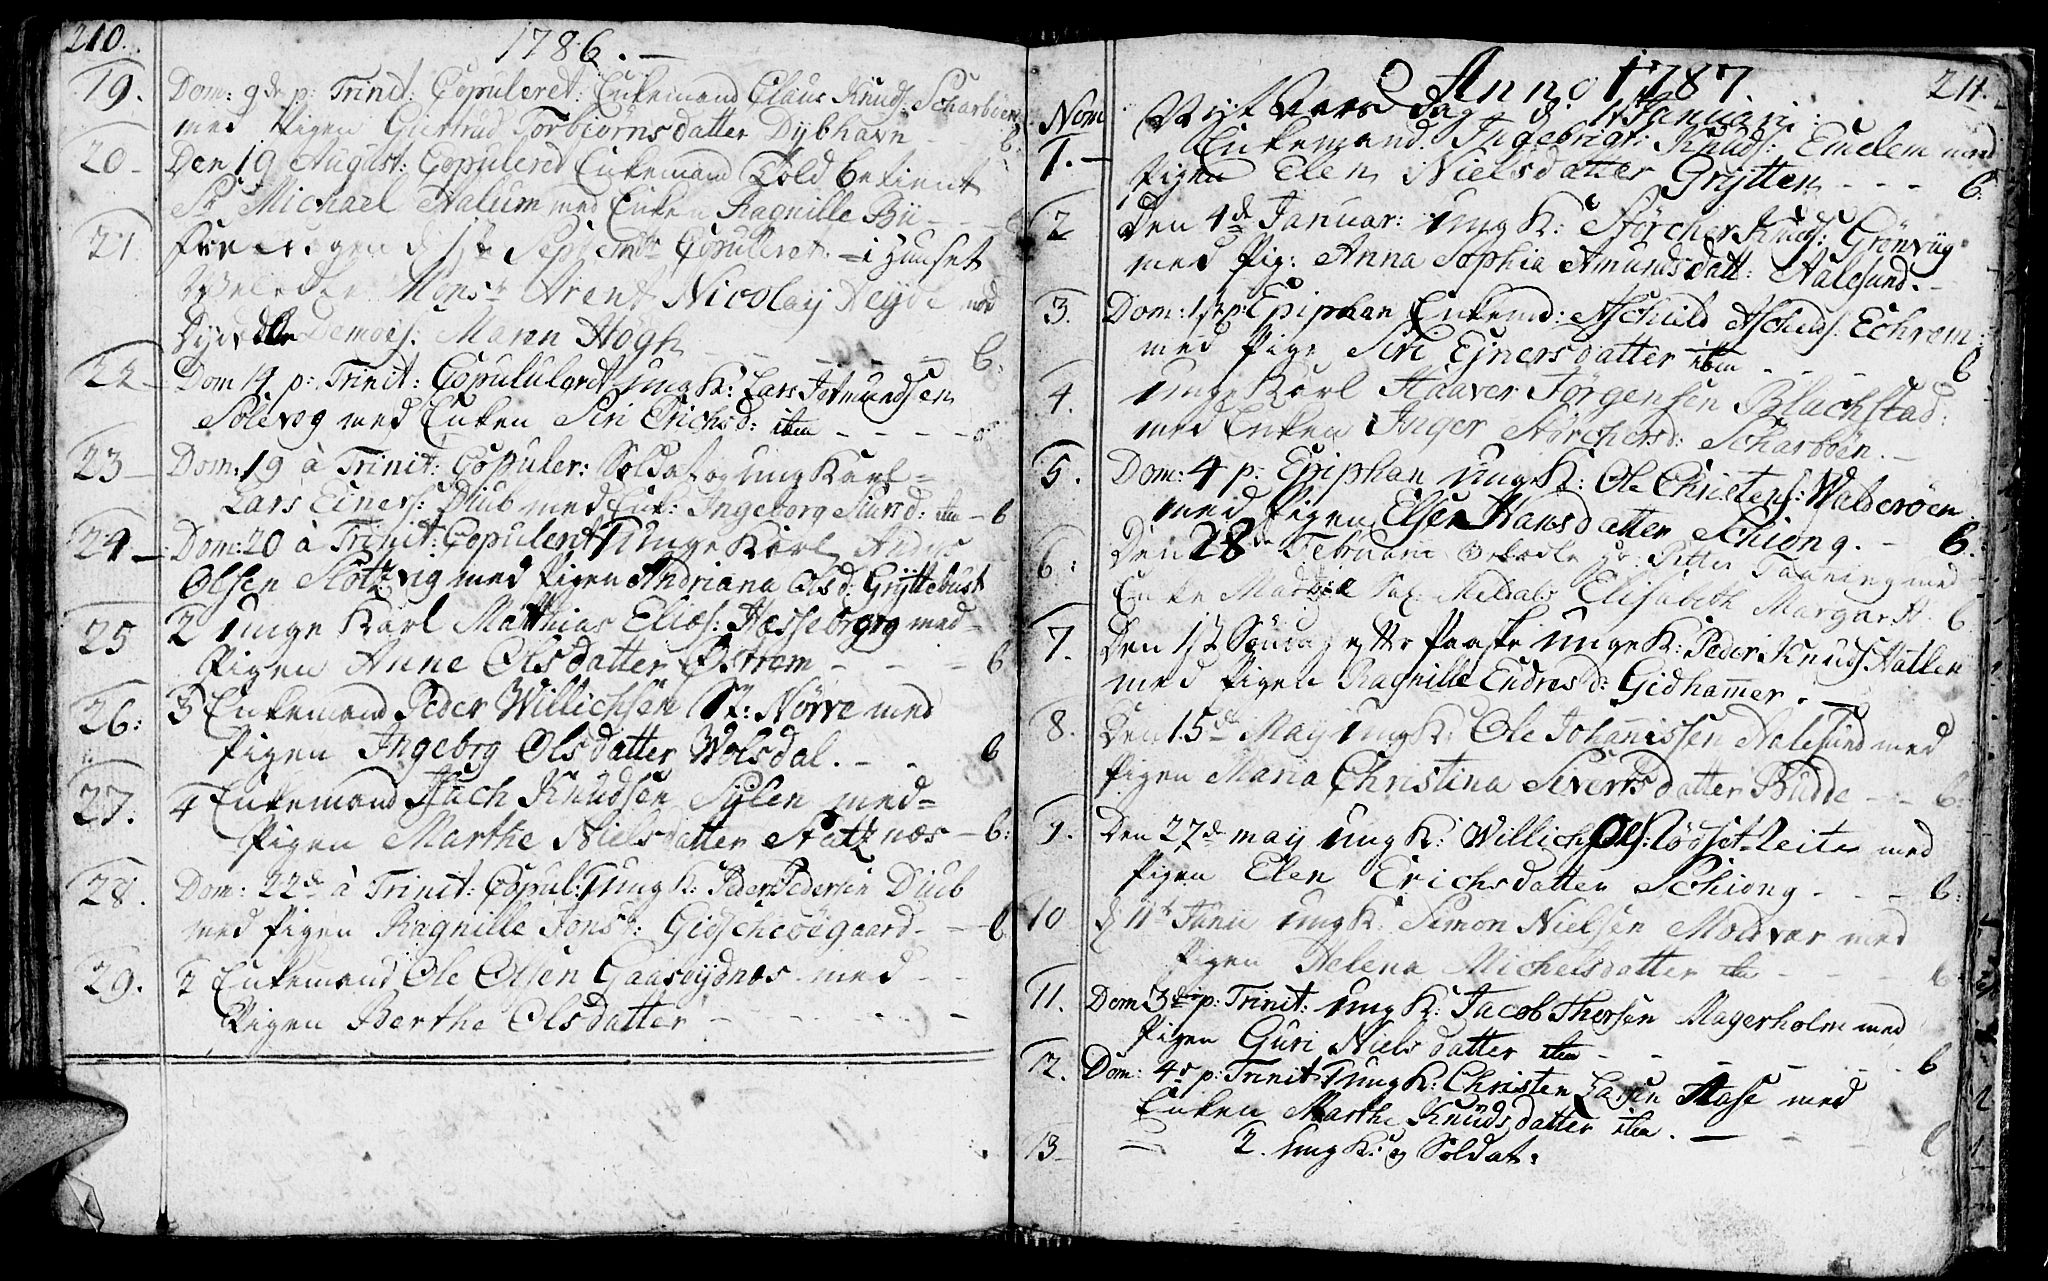 210.
1786.
19. Dom: 9de p: Trinit: Copuleret: Enkemand Claus Knuds: Scharbøen
med Pigen Giertrud Torbiørnsdatter Dybhavn - - 6.
20 - Den 19 August: Copulered Enkemand Told betient
Sr Michael Aalum med Enken Ragnille Bü - -
21. Fredagen d 1ste Septembr Copulleret - i Huuset
Monsr Arent Nicolaij Heyde med
Dydædle Demois. Maren Høgh - - - - 6.
22 - Dom 14 p: Trinit: Copululerdt ung K: Lars Jetmundsen
Solevog med Enken Siri Erichsd: iten - - - -
23 - Dom: 19 à Trinit: Copuler: Soldat og ung Karl =
Lars Einers: Diub med Enk: Ingeborg Siurd: iten - 6
24 - Dom: 20 à Trinit: Copulerdt 1 unge Karl
Olsen Slotzvig med Pigen Andriana Olsd: Gryttebust
25 2 unge Karl Matthias Elias: Hesseberg med -
Pigen Anne Olsdatter Østrem - - - 6
26: 3 Enkemand Peder Willichsen St: Nørve med
Pigen Ingeborg Olsdatter Wolsdal. - - 6
27. 4 Enkemand Auch Knudsen Sylen med =
Pigen Marthe Nielsdatter Aatznæs - 6:
28. Dom: 22de à Trinit: Copul: 1 ung K: Peder Pedersen Diub
med Pigen Ragnille Jonsd: Gidschebøegaard - - 6
29. 2 Enkemand Ole Olsen Gaaseydnes med - -
Pigen Berthe Olsdatter - - - - -
Anno 1787. 211.
Nom Nyt Aars dag d 1 Januarii:
1. - Enkemand Ingebrigt Knuds: Emelem med
Pigen Elen Nielsdatter Grytten - - - 6.
2 Den 4de Januar: ung K: Størcher Knuds: Grönvüg
med Pig: Anna Sophia Amundsdatt: Aalesund. -
3. Dom: 1 p: Epiphan Enkemd: Aschuld Aschuds: Echrem
med Pige Siri Ejnersdatter iten - - - 6
4. unge Karl Haaver Jørgensen Blachstad:
med Enken Inger Størchersd: Scharbøen. -
5. Dom: 4 p: Epiphan ung K: Ole Christens: Walderøen
med Pigen Elsen Hansdatter Schiong. - 6.
6: Den 28de Februarii Hr: Petter Taaning med
Enke Madme Sal: Elisabeth Margar 6
7. Den 1ste Sønda efter Paaske unge K: Peder Knuds Hatlen
med Pigen Ragnille Endresd: Gidhammer. -
8. Den 15de May ung K: Ole Johannissen Aalesund med
Pigen Maria Christina Sivertsdatter Budde - - 6:
9. Den 27de may ung K: Willich Ols: løsset Leite med
Pigen Elen Erichsdatter Schiong - - - 6:
10 d 11te Junii ung K: Simon Nielsen Moldvær med
Pigen Helena Michelsdatter iten - - - 6
11. Dom 3die p: Trinit: ung K: Jacob Thorsen Magerholm med
Pigen Guri Nielsdatter iten - - - - 6
12. Dom: 4de p: Trinit: 1 ung K: Christen Larsen Aase med
Enken Marthe Knüdsdatter iten. - - - 6
13 - 2. ung K: og Soldat: